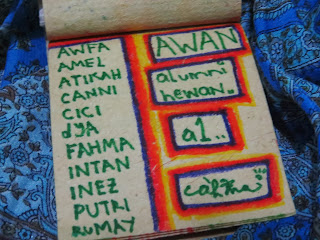 AWFA
AMEL
ATIKAH
CANNI
CICI
dYA
FAHMA
INTAN
INEZ
PUTRI
RUMAY
AWAN
alumni
hewan..
a1..